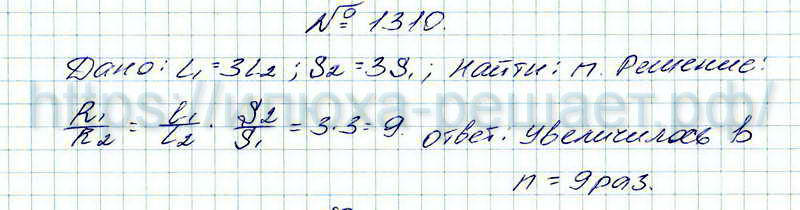 № 1310.
Дано: L₁ = 3L₂ ; S₂ = 3S₁ ; найти: n. Решение:
R₁/R₂ = L₁/L₂ · S₂/S₁ = 3·3 = 9. Ответ: увеличилось в
n = 9 раз.
https://илюха-решает.рф/